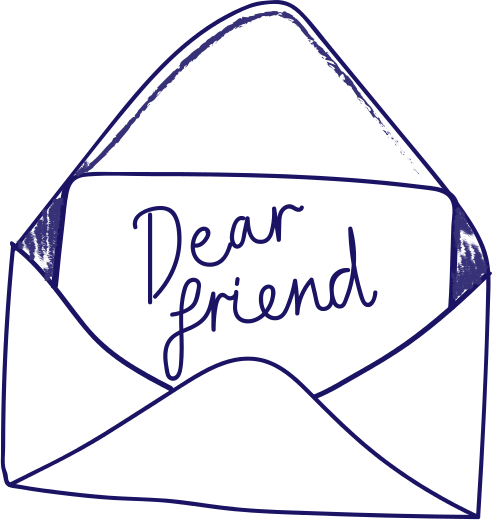 Dear
friend